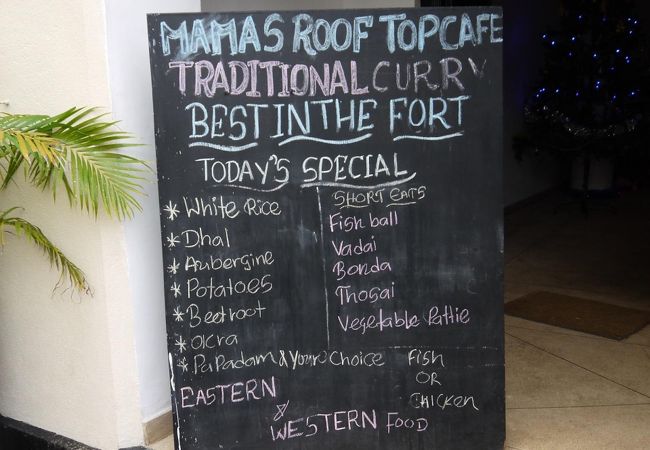 MAMAS ROOF TOP CAFE
TRADITIONAL CURRY
BEST IN THE FORT
TODAY'S SPECIAL
* White Rice
* Dhal
* Aubergine
* Potatoes
* Beetroot
* OKra
* PaPadam & Your Choice Fish OR CHicken
SHORT EATS
Fish ball
Vadai
Bonda
Thosai
Vegetable Pattie
EASTERN
& WESTERN FOOD